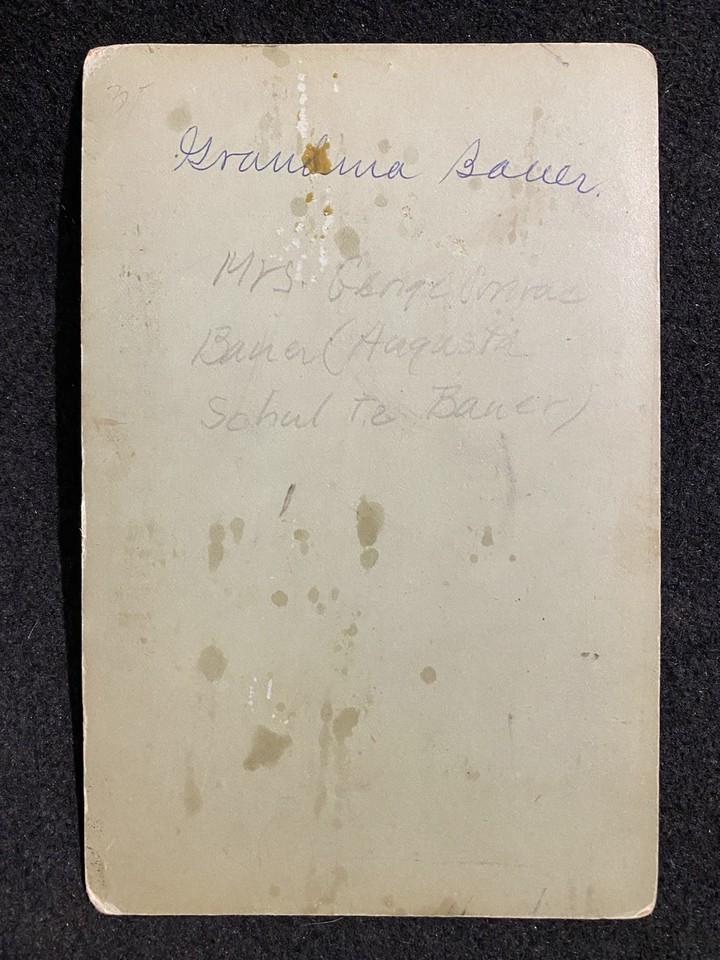 Grandma Bauer.
Mrs. George Conrad
Bauer (Augusta
Schultz Bauer)